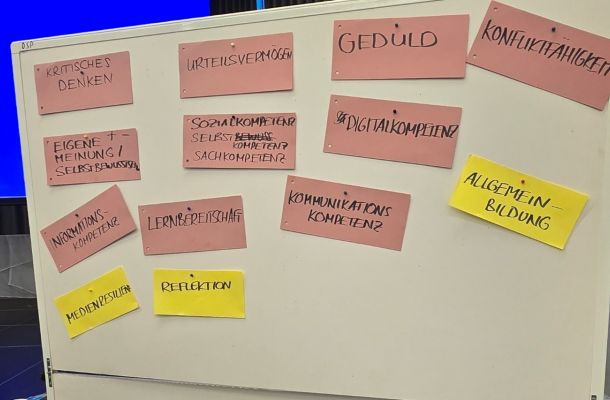 KRITISCHES
DENKEN
URTEILSVERMÖGEN
GEDULD
KONFLIKTFÄHIGKEIT
EIGENE + -
MEINUNG /
SELBSTBEWUSSTSEIN
SOZIALKOMPETENZ
SELBSTBEWUSS
KOMPETENZ
SACHKOMPETENZ
DIGITALKOMPETENZ
ALLGEMEIN-
BILDUNG
INFORMATIONS-
KOMPETENZ
LERNBEREITSCHAFT
KOMMUNIKATIONS
KOMPETENZ
MEDIENRESILIENZ
REFLEKTION